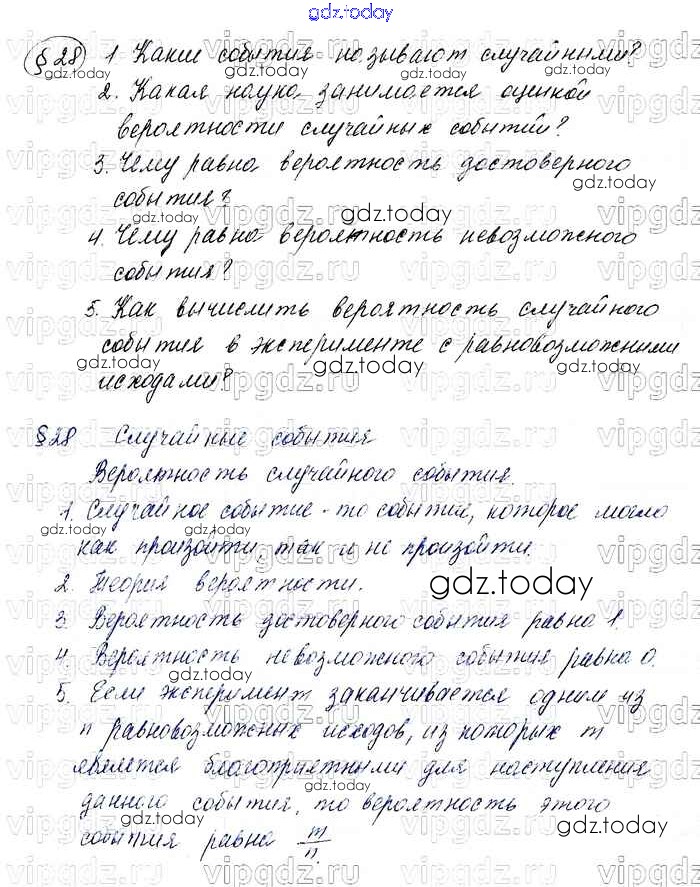 gdz.today
§ 28 1. Какие события называют случайными?
2. Какая наука занимается оценкой
вероятности случайных событий?
3. Чему равна вероятность достоверного
события?
4. Чему равна вероятность невозможного
события?
5. Как вычислить вероятность случайного
события в эксперименте с равновозможными
исходами?
§28 Случайные события
Вероятность случайного события.
1. Случайное событие - то событие, которое могло
как произойти, так и не произойти.
2. Теория вероятности.
3. Вероятность достоверного события равна 1.
4. Вероятность невозможного события равна 0.
5. Если эксперимент заканчивается одним из
n равновозможных исходов, из которых m
является благоприятными для наступления
данного события, то вероятность этого
события равна m/n.